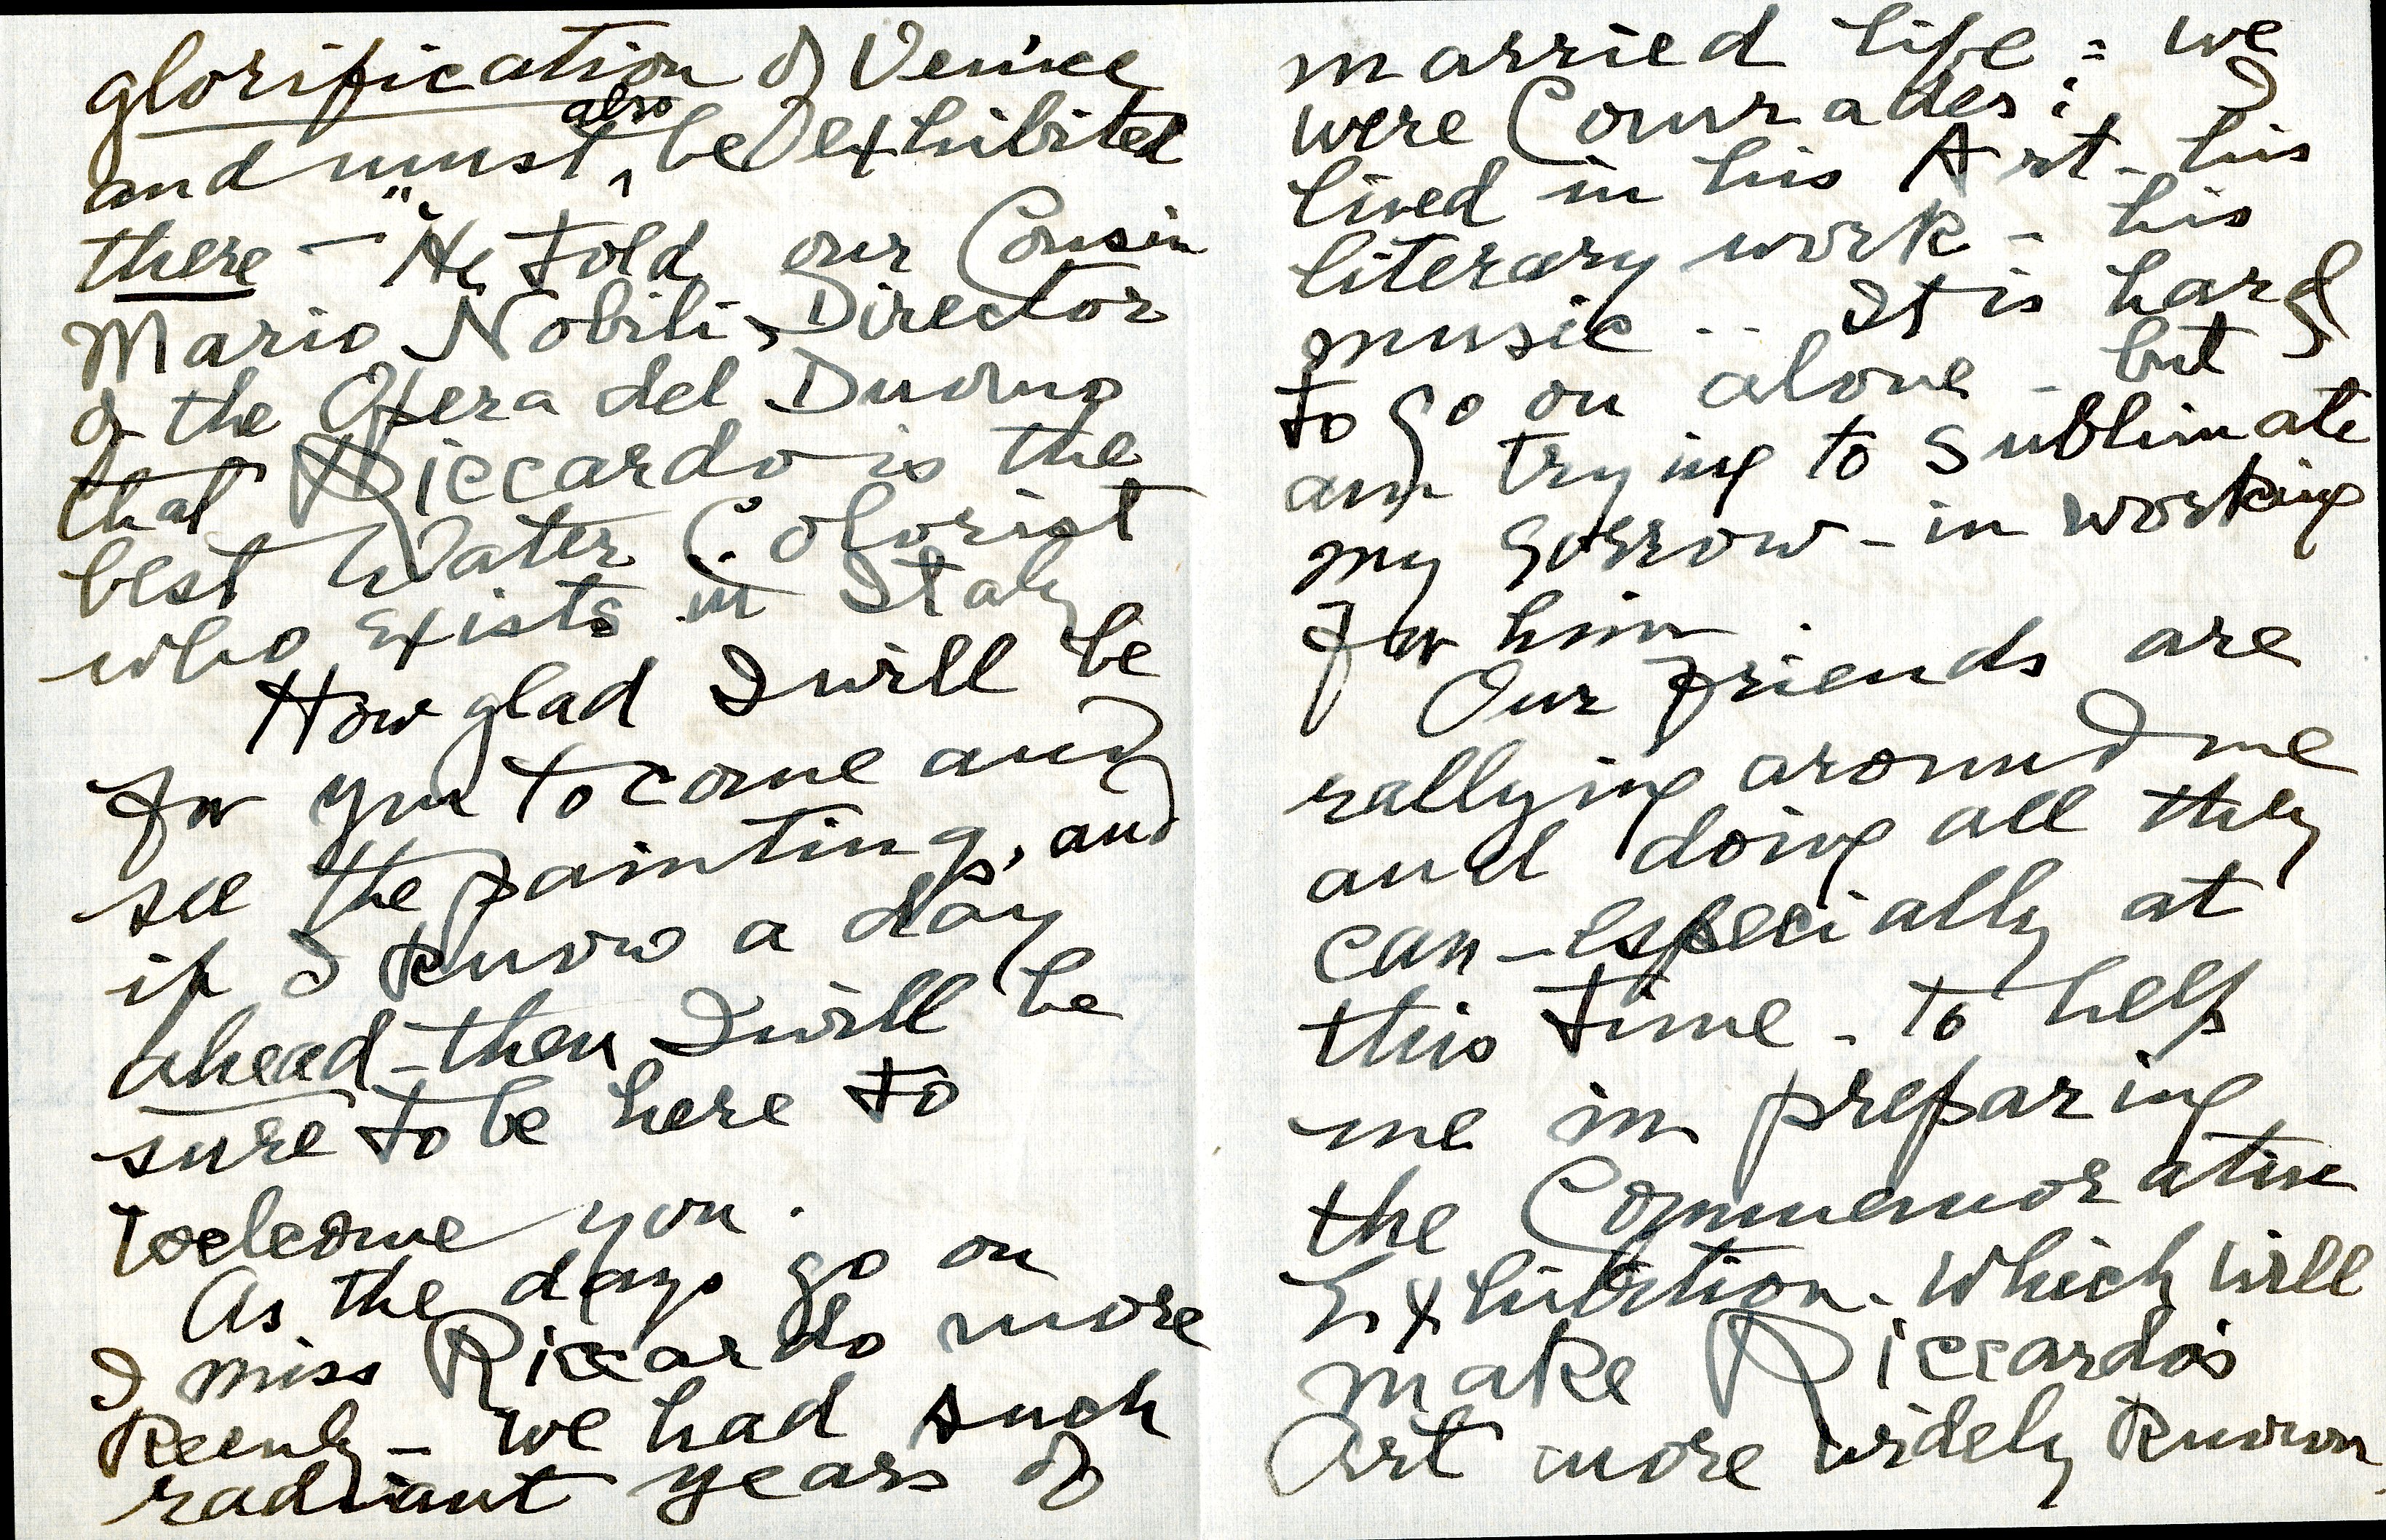 glorification of Venice
and must also be exhibited
there —" He told our Cousin
Mario Nobili, Director
of the Opera del Duomo
that Riccardo is the
best Water Colorist
who exists in Italy
How glad I will be
for you to come and
see the paintings, and
if I know a day
ahead - then I will be
sure to be here to
welcome you.
As the days go on
I miss Riccardo more
keenly - we had such
radiant years of
married life: we
were Comrades: I
lived in his Art - his
literary work - his
music .. It is hard
to go on alone - but I
am trying to sublimate
my sorrow - in working
for him.
Our friends are
rallying around me
and doing all they
can - especially at
this time - to help
me in preparing
the Commemorative
Exhibition - which will
make Riccardo's
Art more widely known